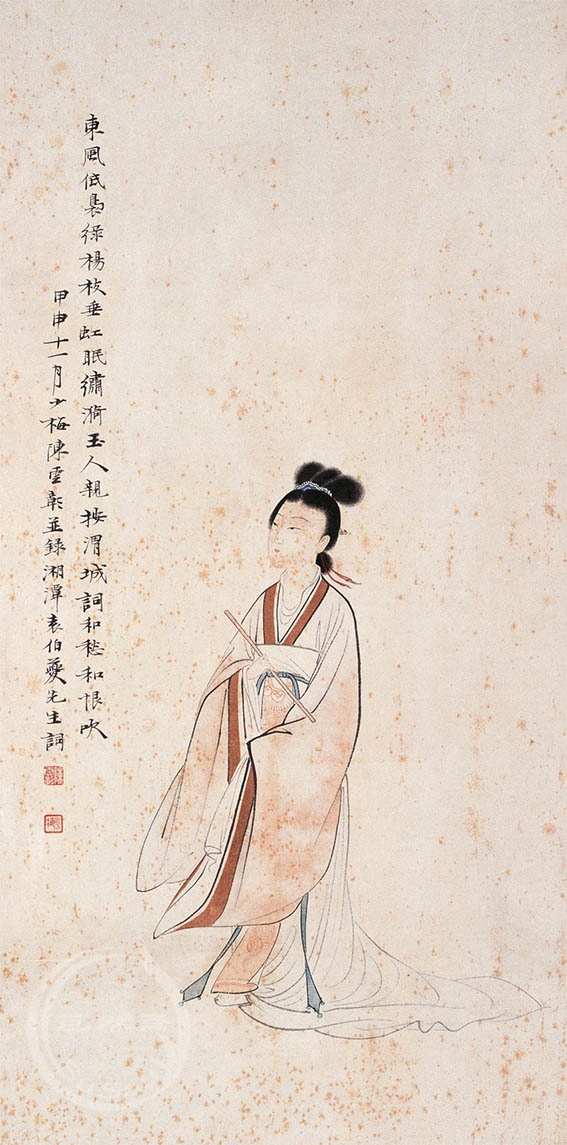 東風低裊綠楊枝垂虹眠繡漪玉人親按渭城詞和愁和恨吹
甲申十一月少梅陳雲彰並錄湘潭袁伯夔先生詞